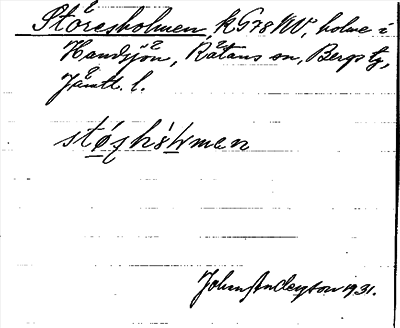 Störesholmen, kG78NV, holme i
Handsjön, Rätans sn, Bergs tg,
Jämtl. l.
støʂhɷ́lmen
John Andersson 1931.